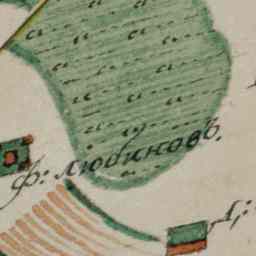 ф: любиновъ.
Д: